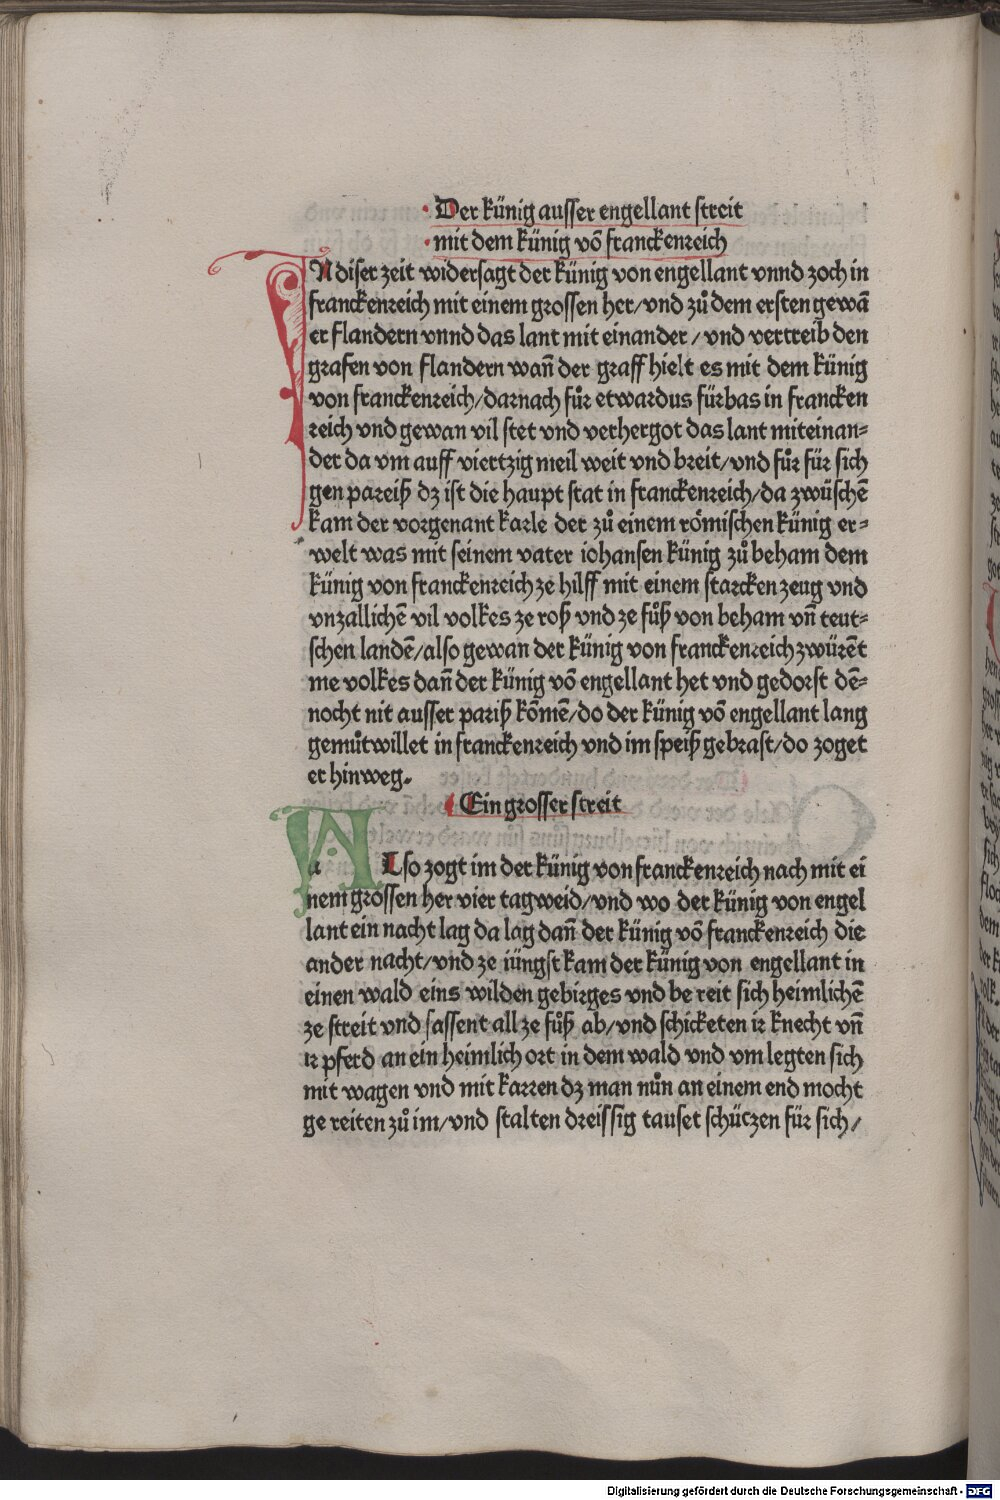 Der künig ausser engellant streit
mit dem künig võ franckenreich
INdiser zeit widersagt der künig von engellant vnnd zoch in
franckenreich mit einem grossen her/vnd zů dem ersten gewã
er flandern vnnd das lant mit einander/vnd vertreib den
grafen von flandern wañ der graff hielt es mit dem künig
von franckenreich/darnach fůr etwardus fürbas in francken
reich vnd gewan vil stet vnd verhergot das lant miteinan-
der da vm auff viertzig meil weit vnd breit/vnd fůr für sich
gen pareiß dz ist die haupt stat in franckenreich/da zwüschẽ
kam der vorgenant karle der zů einem römischen künig er-
welt was mit seinem vater iohansen künig zů beham dem
künig von franckenreich ze hilff mit einem starcken zeug vnd
vnzallichẽ vil volkes ze roß vnd ze fůß von beham vñ teut-
schen landẽ/also gewan der künig von franckenreich zwürẽt
me volkes dañ der künig võ engellant het vnd gedorst dẽ-
nocht nit ausser pariß kõmẽ/do der künig võ engellant lang
gemůtwillet in franckenreich vnd im speiß gebrast/do zoget
er hinweg.
Ein grosser streit
ALso zogt im der künig von franckenreich nach mit ei
nem grossen her vier tagweid/vnd wo der künig von engel
lant ein nacht lag da lag dañ der künig võ franckenreich die
ander nacht/vnd ze iüngst kam der künig von engellant in
einen wald eins wilden gebirges vnd be reit sich heimlichẽ
ze streit vnd sassent all ze fůß ab/vnd schicketen ir knecht vñ
ir pferd an ein heimlich ort in dem wald vnd vm legten sich
mit wagen vnd mit karren dz man nůn an einem end mocht
ge reiten zů im/vnd stalten dreissig tauset schützen für sich/
Digitalisierung gefördert durch die Deutsche Forschungsgemeinschaft - DFG